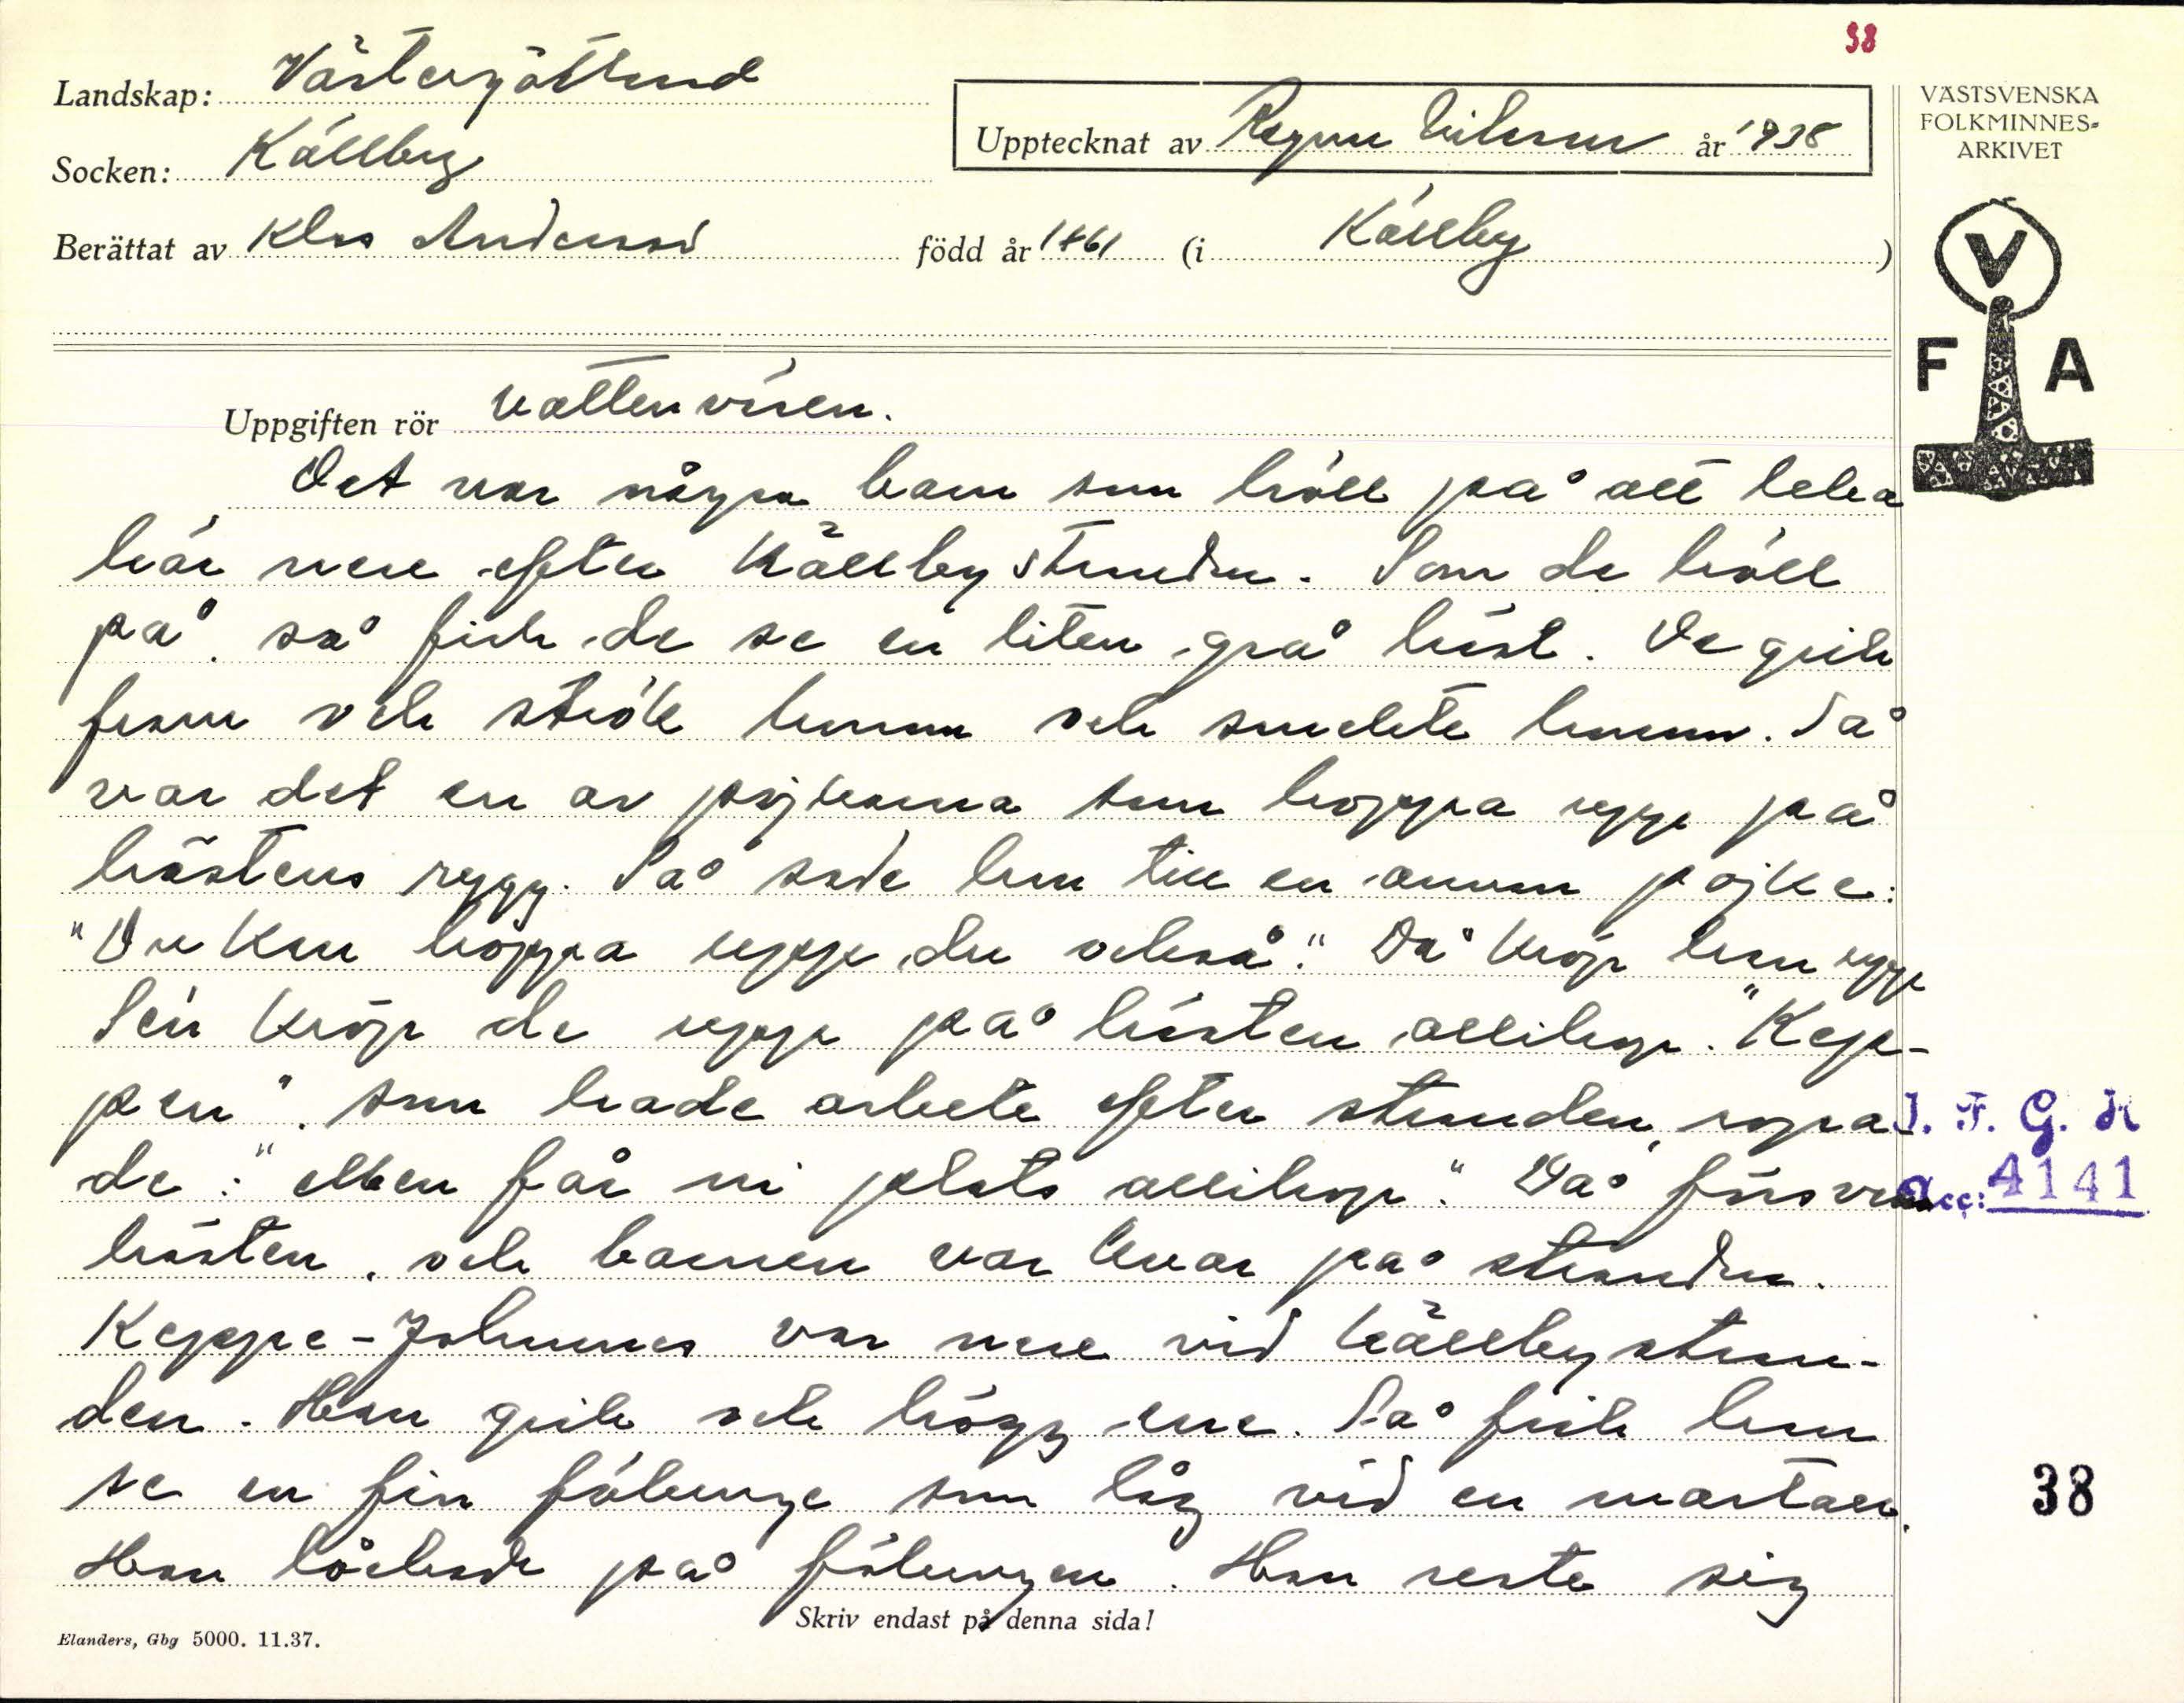 38
Landskap: Västergötland
Socken: Källby
Upptecknat av Ragnar Nilsson år 1938
VÄSTSVENSKA
FOLKMINNES-
ARKIVET
Berättat av Klas Andersson född år 1861 (i Källby )
V
F A
Uppgiften rör Vattenväsen.
Det var några barn som höll på att leka
här nere efter Källby stranden. Som de höll
på så fick de se en liten grå häst. De gick
fram och strök honom och smekte honom. Så
var det en av pojkarna som hoppa upp på
hästens rygg. Så sade han till en annan pojke:
"Du kan hoppa upp du också." Då kröp han upp
Sen kröp de upp på hästen allihop. "Kep-
pen", som hade arbete efter stranden, ropa-
de: "Men får ni plats allihop." Då försvann
hästen, och barnen var kvar på stranden.
Keppe-Johannes var nere vid Källbystran-
den. Han gick och högg ene. Så fick han
se en fin fålunge som låg vid en martall.
Han lockade på fålungen. Han reste sig
I. F. G. H
Acc: 4141
38
Skriv endast på denna sida!
Elanders, Gbg 5000. 11.37.